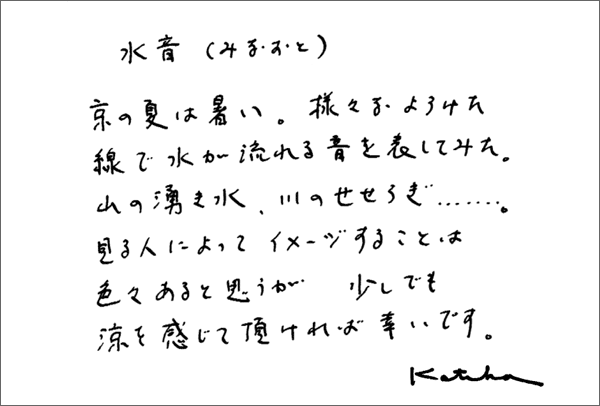 水音（みなおと）
京の夏は暑い。様々なよろけた
線で水が流れる音を表してみた。
山の湧き水、川のせせらぎ……。
見る人によってイメージすることは
色々あると思うが　少しでも
涼を感じて頂ければ幸いです。